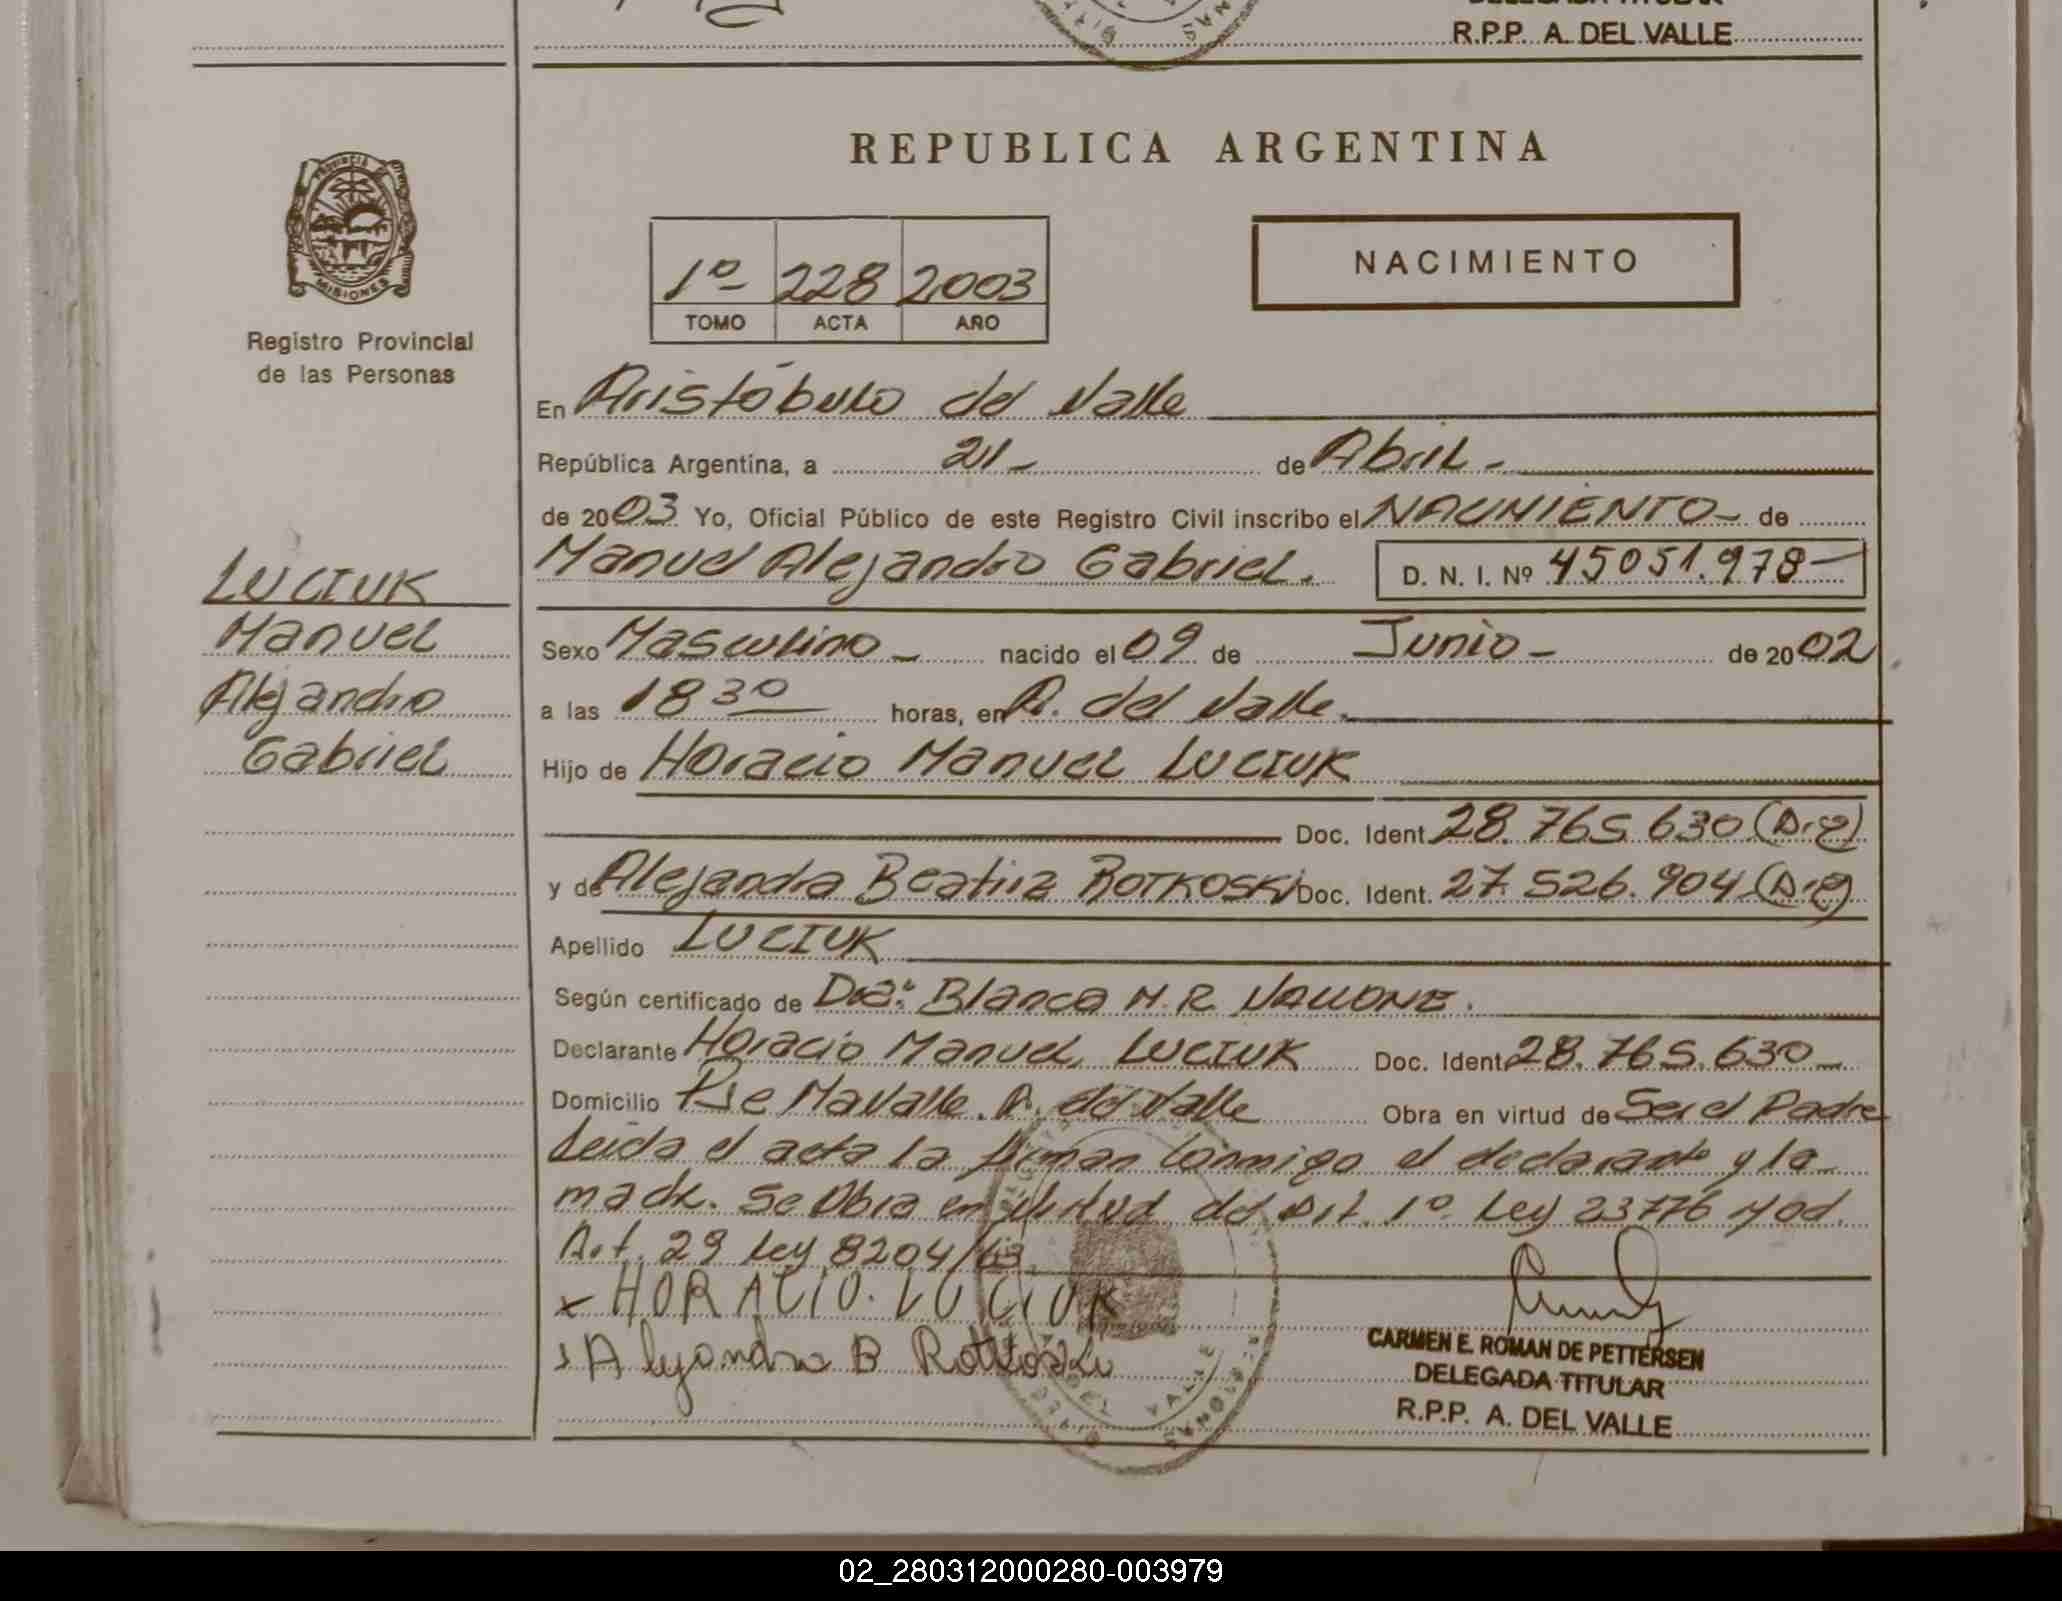 R.P.P. A. DEL VALLE
REPUBLICA ARGENTINA
PROVINCIA DE
MISIONES
Registro Provincial
de las Personas
1º 228 2003
TOMO ACTA AÑO
NACIMIENTO
En Aristóbulo del Valle
República Argentina, a 21 - de Abril -
de 2003 Yo, Oficial Público de este Registro Civil inscribo el NACIMIENTO - de
Manuel Alejandro Gabriel. D. N. I. Nº 45051.978 -
LUCIUK
Manuel
Alejandro
Gabriel
Sexo Masculino - nacido el 09 de Junio - de 2002
a las 18 30 horas, en A. del Valle.
Hijo de Horacio Manuel LUCIUK
Doc. Ident. 28.765.630 (Arg)
y de Alejandra Beatriz ROTKOSKI Doc. Ident. 27.526.904 (Arg)
Apellido LUCIUK
Según certificado de Dra: Blanca M. R.
Declarante Horacio Manuel LUCIUK Doc. Ident. 28.765.630 -
Domicilio Pje MaValle. A. del Valle Obra en virtud de Ser el Padre
Leida el acta la firman conmigo el declarante y la
madre. Se Obra en virtud del Art. 1º Ley 23776 Mod.
Art. 29 Ley 8204/63
x HORACIO. LUCIUK
Alejandra B Rotkoski
CARMEN E. ROMAN DE PETTERSEN
DELEGADA TITULAR
R.P.P. A. DEL VALLE
DEL VALLE
MISIONES
02_280312000280-003979